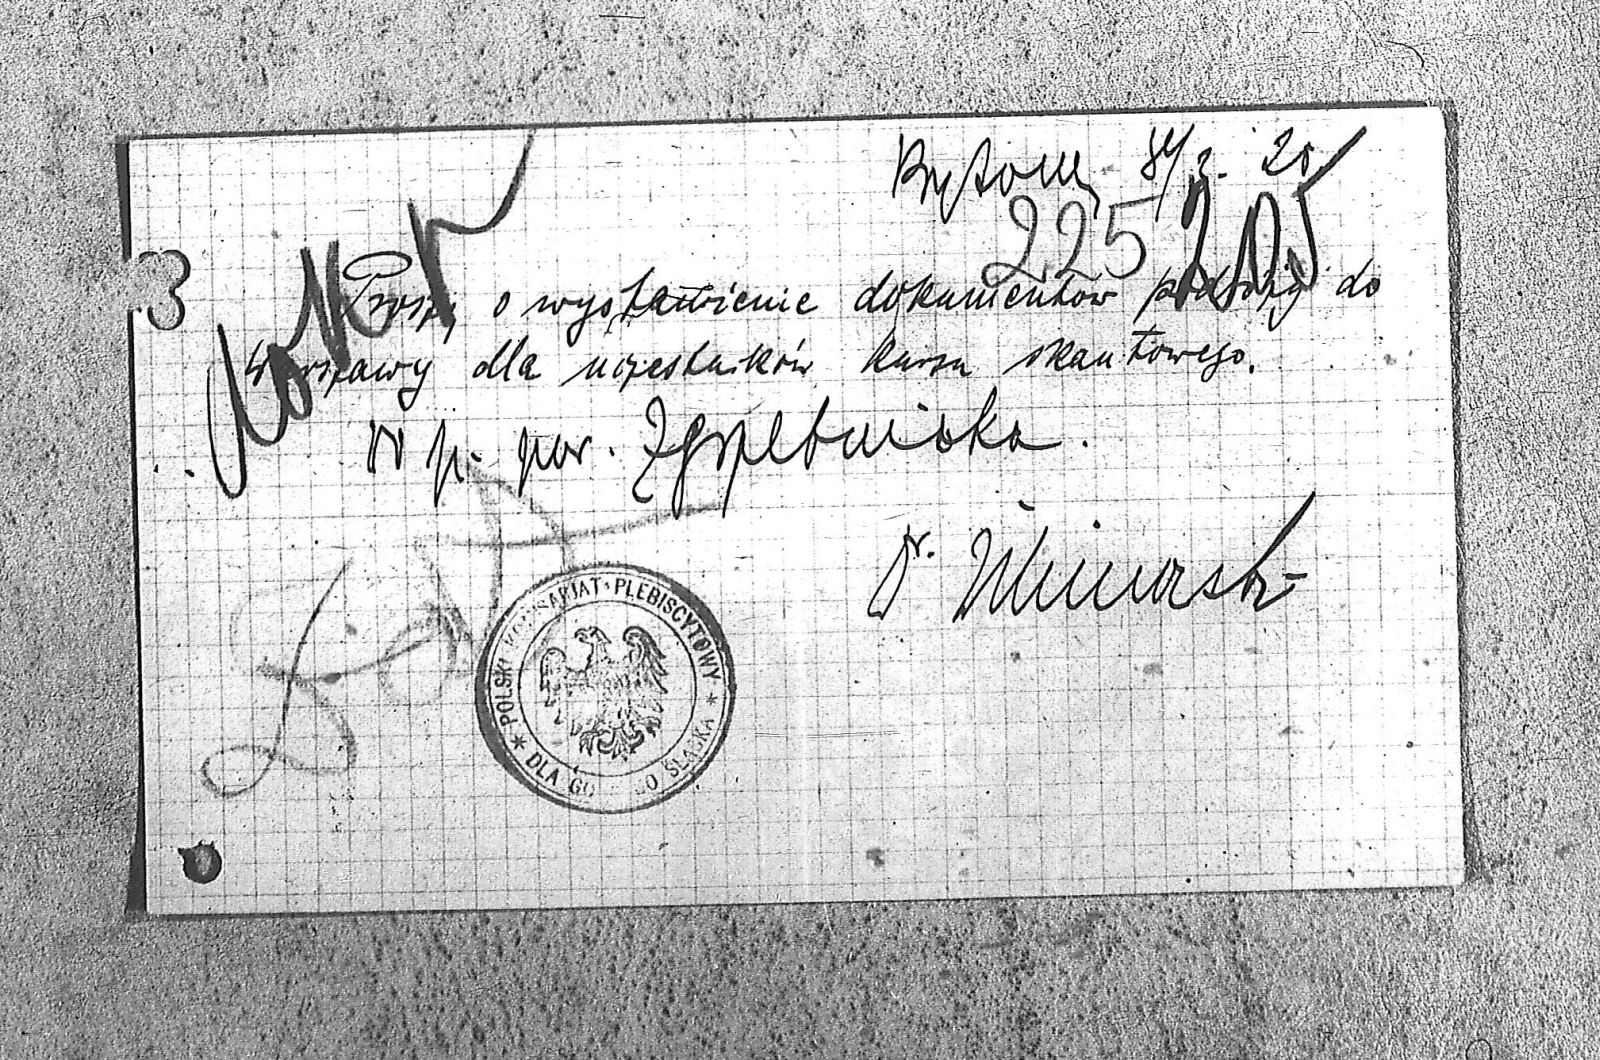 Bytom 20
225 205
3
Proszę o wystawienie dokumentów podróży do
Warszawy dla uczestników kursu skautowego.
W p. por. Zgrzebnioka.
Dr.
* POLSKI KOMISARJAT PLEBISCYTOWY *
DLA GO O ŚLĄSKA